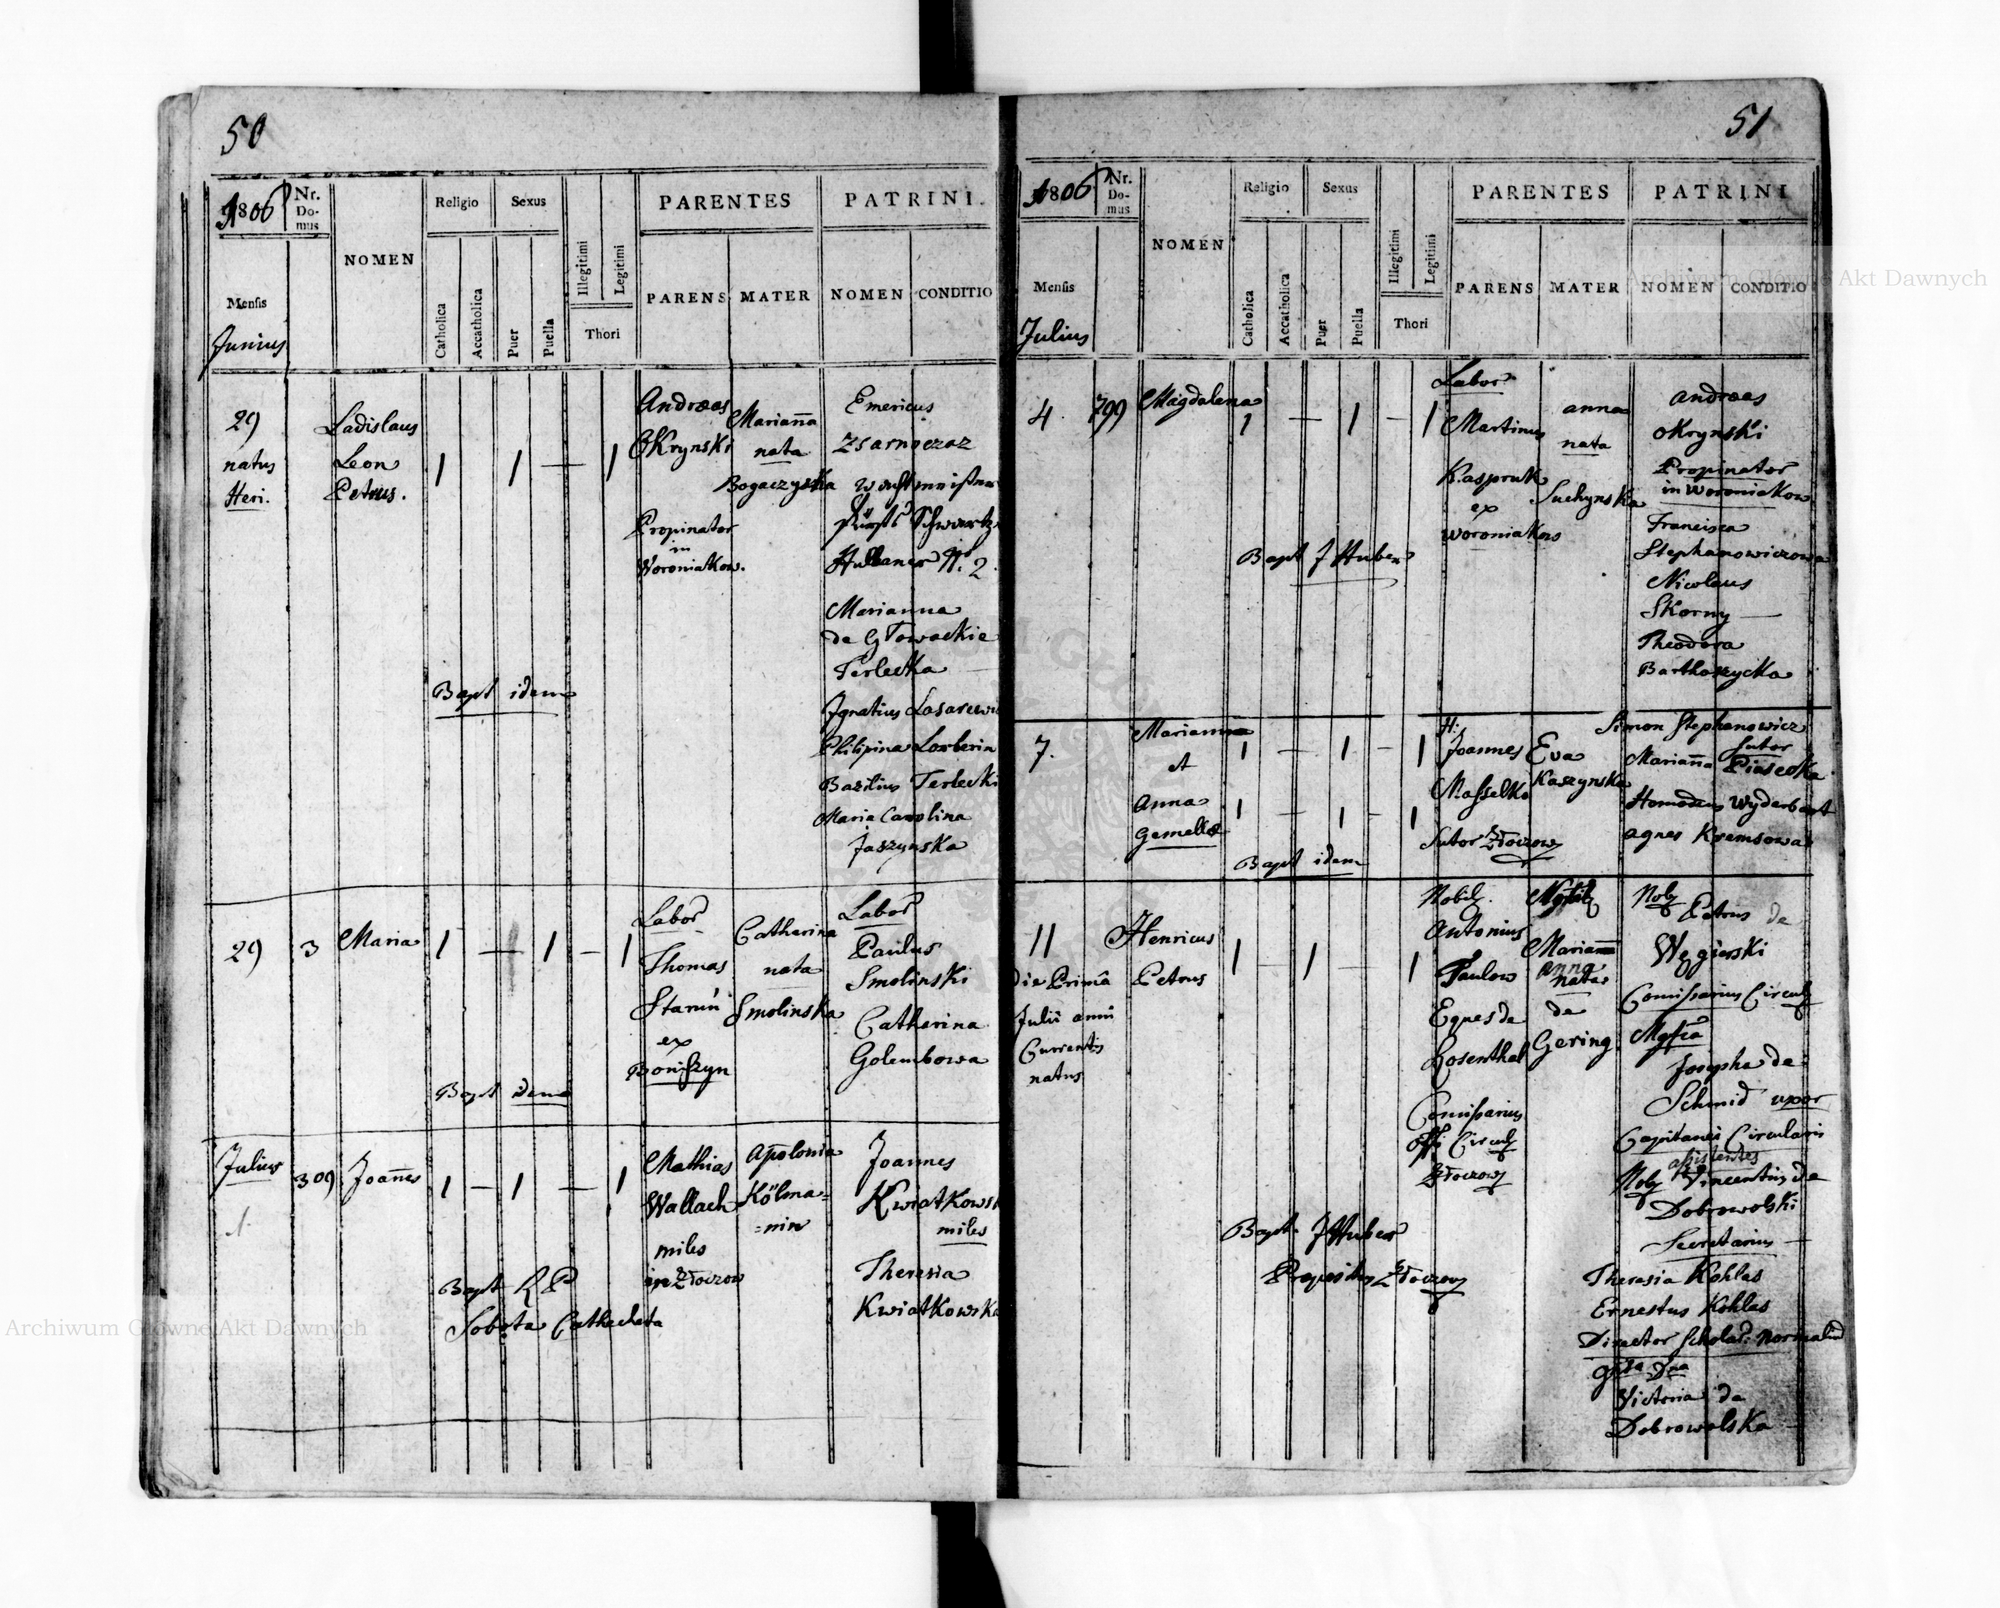 50
1806
Nr.
Do-
mus
NOMEN
Religio
Sexus
Illegitimi
Legitimi
Thori
PARENTES
PATRINI.
Mensis
Junius
Catholica
Accatholica
Puer
Puella
PARENS
MATER
NOMEN
CONDITIO
29
natus
Heri.
Ladislaus
Leon
Petrus.
1
1
—
1
Andreas
Okrynski
Propinator
in
Woroniakow.
Marianna
nata
Bogaczyska
Emericus
Zsarnoczaz
Wachtmeister
Fürst Schwartz
Hullaner N. 2.
Marianna
de Głowackie
Terlecka
Ignatius Lasarewi
Philipina Lorberin
Bazilius Terlecki
Maria Carolina
Jaszynska
Bapt idem
29
3
Maria
1
—
1
—
1
Labor
Thomas
Starun
ex
Boniszyn
Catherina
nata
Smolinska
Labor
Paulus
Smolinski
Catherina
Golembowa
Bapt idem
Julius
1.
309
Joannes
1
—
1
—
1
Mathias
Wallach
miles
in Złoczow
Apolonia
Kölma=
=nin
Joannes
Kwiatkowsk
miles
Theresia
Kwiatkowska
Bapt R P
Sobota Cathecheta
51
1806
Nr.
Do-
mus
NOMEN
Religio
Sexus
Illegitimi
Legitimi
Thori
PARENTES
PATRINI
Mensis
Julius
Catholica
Accatholica
Puer
Puella
PARENS
MATER
NOMEN
CONDITIO
4
799
Magdalena
1
—
1
—
1
Labor
Martinus
Kaspruk
ex
Woroniakow
Anna
nata
Suchynska
Andreas
Okrynski
Propinator
in Woroniakow
Francisca
Stephanowiczowa
Nicolaus
Skorny —
Theodora
Barthoszycka
Bapt J Huber
7.
Marianna
et
Anna
Gemellæ
1
—
1
—
1
1
—
1
—
1
H:
Joannes
Masselko
Sutor Złoczow
Eva
Kaszynska
Simon Stephanowicz
Sutor
Marianna Piasecka
Homodeus Wyderbart
Agnes Kremsowa
Bapt idem
11
Die Prima
Julii anni
Currentis
natus
Henricus
Petrus
1
—
1
—
1
Nobil.
Antonius
Paulow
Eques de
Rosenthal
Comissarius
Offi Circul
Złoczow
Marianna
Anna
nata
de
Gering
Nob Petrus de
Węgierski
Comissarius Circul
Josepha de
Schmid uxor
Capitanei Circularis
assistentes
Nob Vincentius de
Dobrowolski
Secretarius —
Theresia Kohlas
Ernestus Kohlas
Director Schola: Normaliu
Victoria de
Dobrowolska
Bapt. J Huber
Prepositus Złoczow
Archiwum Główne Akt Dawnych
Archiwum Główne Akt Dawnych